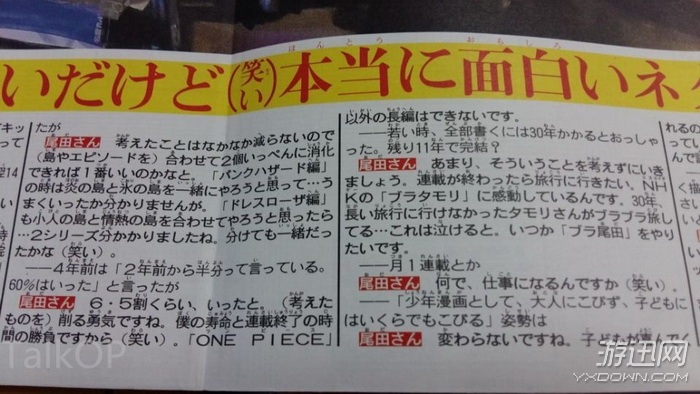 いだけど(笑い)本当に面白いネ
たが
尾田さん 考えたことはなかなか減らないので
(島やエピソードを)合わせて2個いっぺんに消化
できれば1番いいのかなと。「パンクハザード編」
の時は炎の島と氷の島を一緒にやろうと思って…う
まくいったか分かりませんが。「ドレスローザ編」
も小人の島と情熱の島を合わせてやろうと思ったら
…2シリーズ分かかりましたね。分けても一緒だっ
たかな(笑い)。
――4年前は「2年前から半分って言っている。
60%はいった」と言ったが
尾田さん 6・5割くらい、いったと。(考えた
ものを)削る勇気ですね。僕の寿命と連載終了の時
間の勝負ですから(笑い)。「ONE PIECE」
以外の長編はできないです。
――若い時、全部書くには30年かかるとおっしゃ
った。残り11年で完結?
尾田さん あまり、そういうことを考えずにいき
ましょう。連載が終わったら旅行に行きたい。NH
Kの「ブラタモリ」に感動しているんです。30年、
長い旅行に行けなかったタモリさんがブラブラ旅し
てる…これは泣けると。いつか「ブラ尾田」をやり
たいです。
――月1連載とか
尾田さん 何で、仕事になるんですか(笑い)。
――「少年漫画として、大人にこびず、子どもに
はいくらでもこびる」姿勢は
尾田さん 変わらないですね。子どもが喜んでく
TalkOP
游迅网
YXDOWN.COM